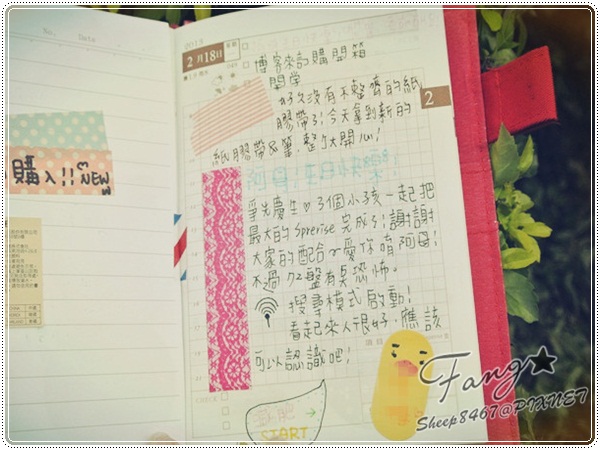 No.
Date
購入!! NEW
2013
2月18日
2
博客來訂購開箱
開學
好久沒有不整齊的紙
膠帶了!今天拿到新的
紙膠帶&筆,整個大開心!
爭先慶生♡3個小孩一起把
最大的Sprerise完成了!謝謝
大家的配合~愛你唷阿母!
不過72盤有臭恐怖。
搜尋模式啟動!
看起來人很好,應該
可以認識吧!
CHECK
減肥
START
Fang★
Sheep8467@PIXNET